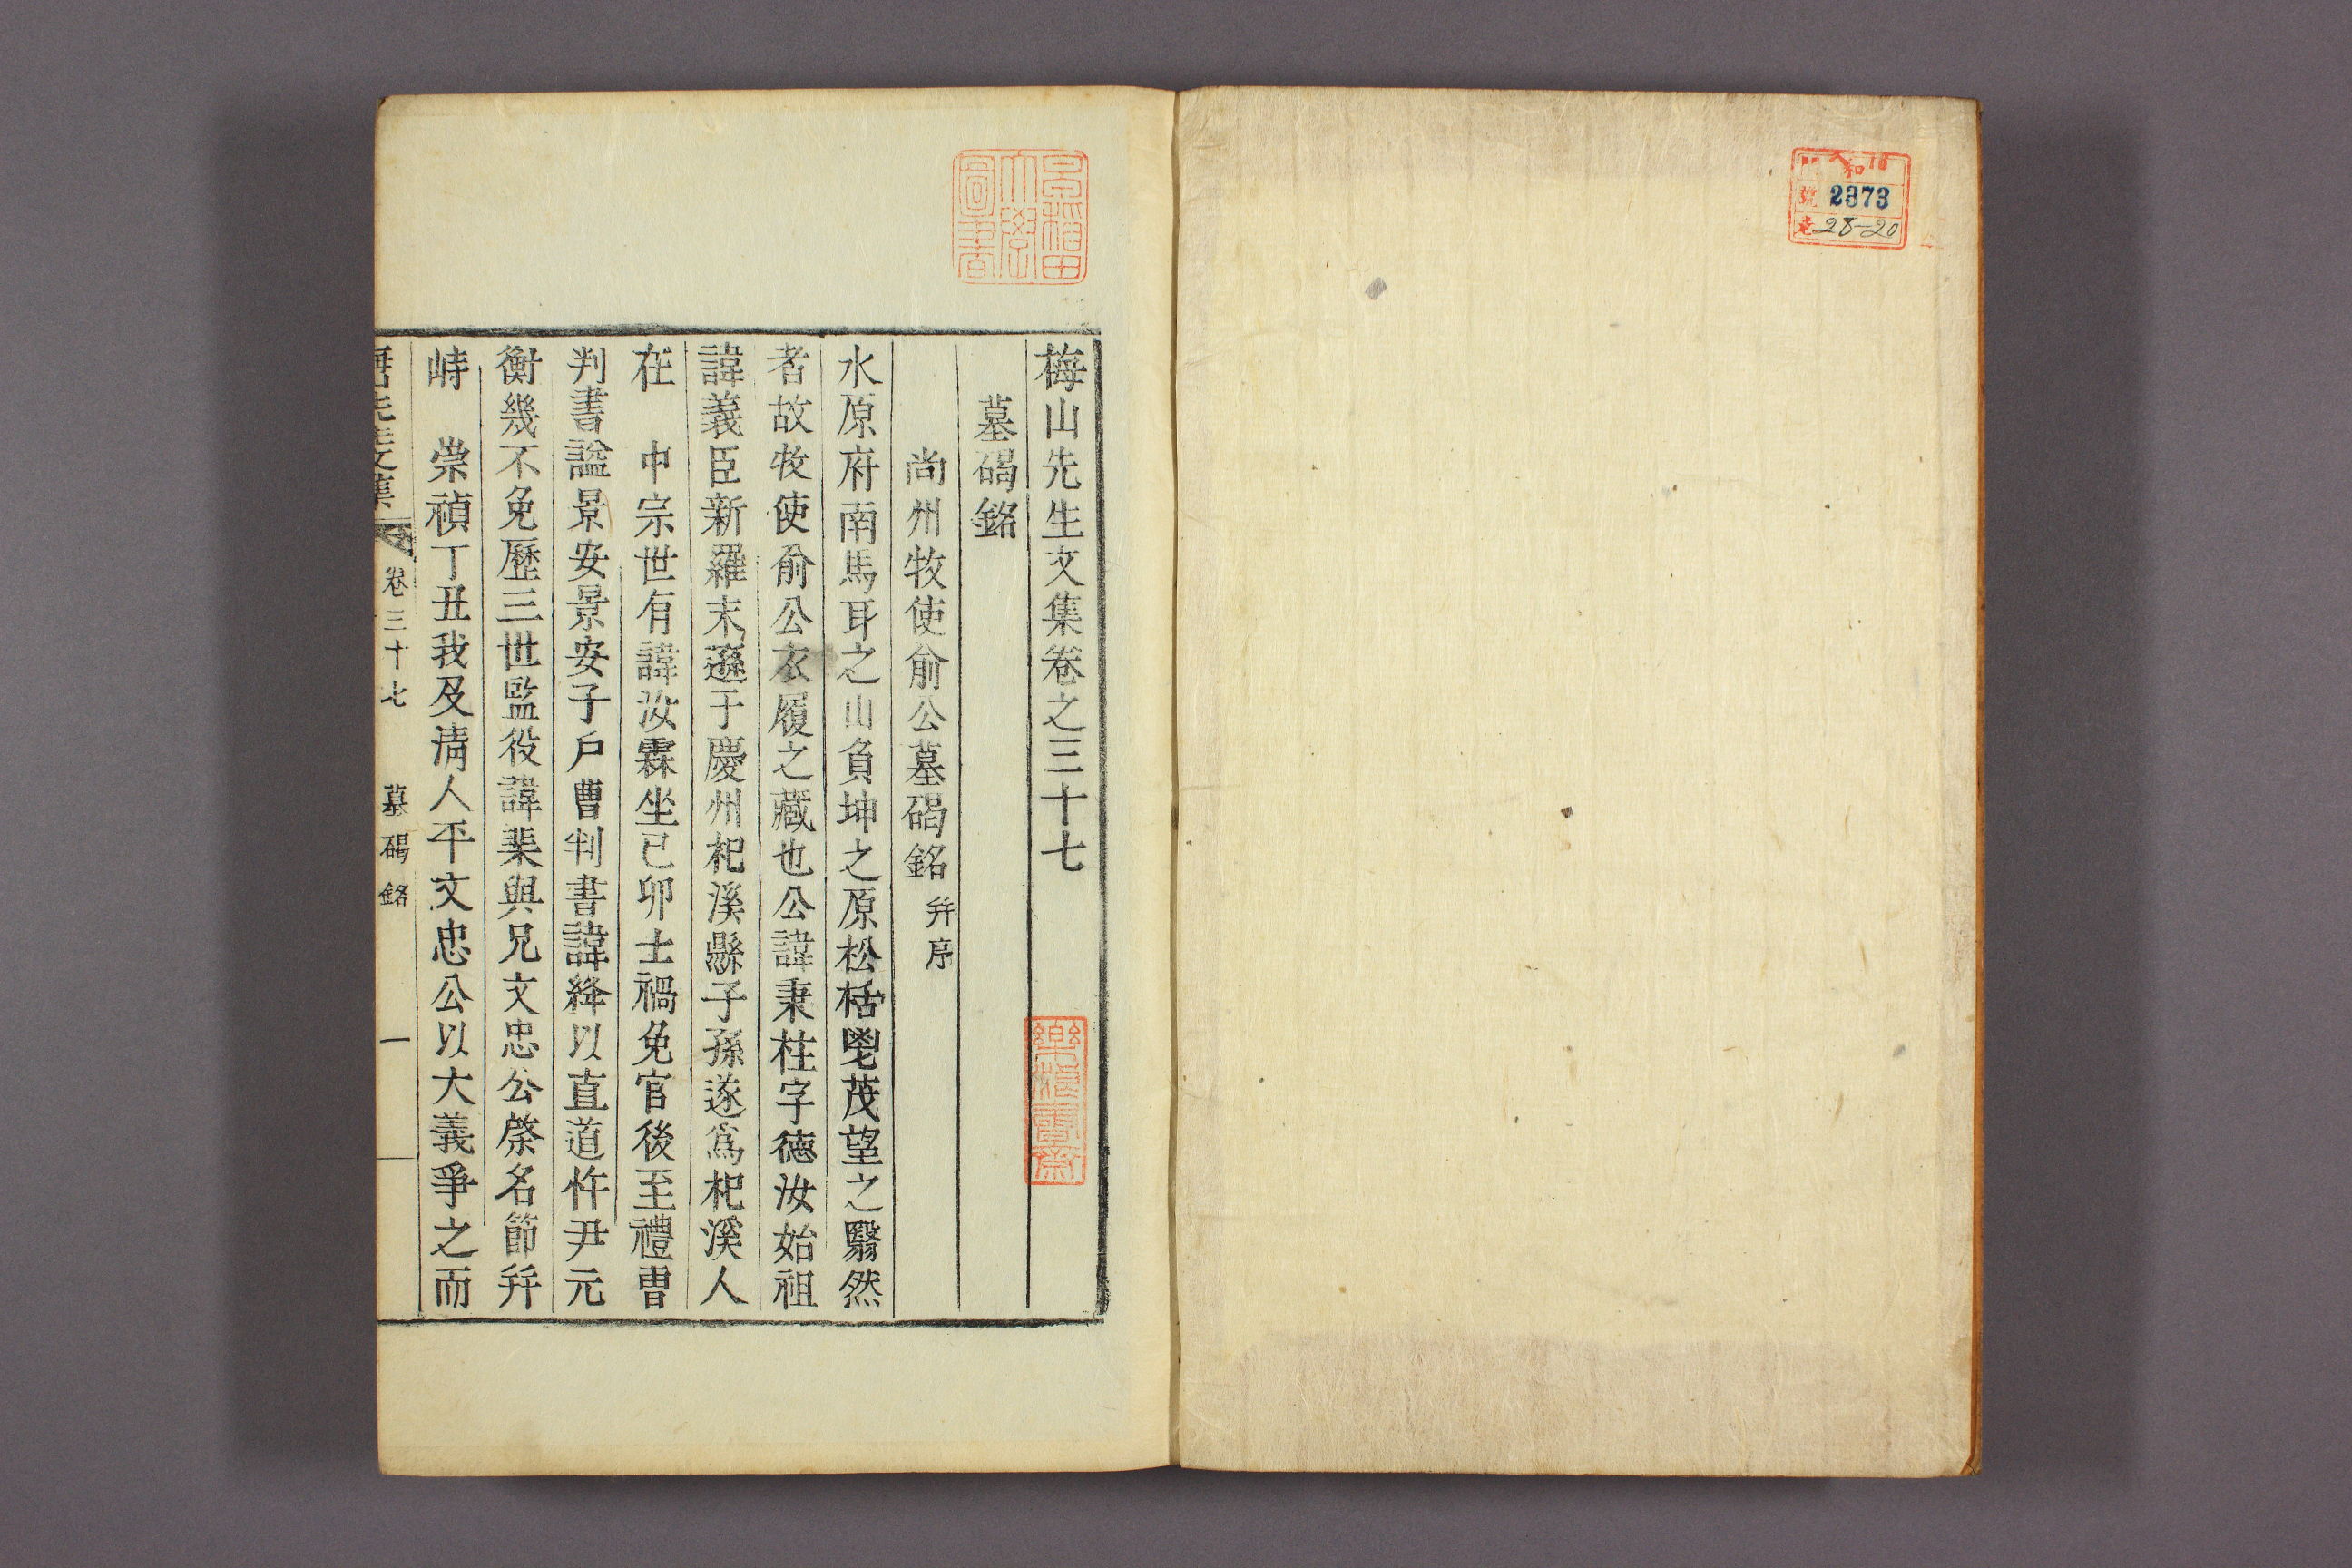 和 16
號 2373
卷 28-20
早稻田大學圖書
梅山先生文集卷之三十七
墓碣銘
尚州牧使俞公墓碣銘 幷序
水原府南馬耳之山負坤之原松栝鬯茂望之翳然
者故牧使俞公衣履之藏也公諱秉柱字德汝始祖
諱義臣新羅末遜于慶州杞溪縣子孫遂爲杞溪人
在 中宗世有諱汝霖坐己卯士禍免官後至禮曹
判書謚景安景安子戶曹判書諱絳以直道忤尹元
衡幾不免歷三世監役諱棐與兄文忠公棨名節幷
峙 崇禎丁丑我及淸人平文忠公以大義爭之而
先生文集 卷三十七 墓碣銘 一